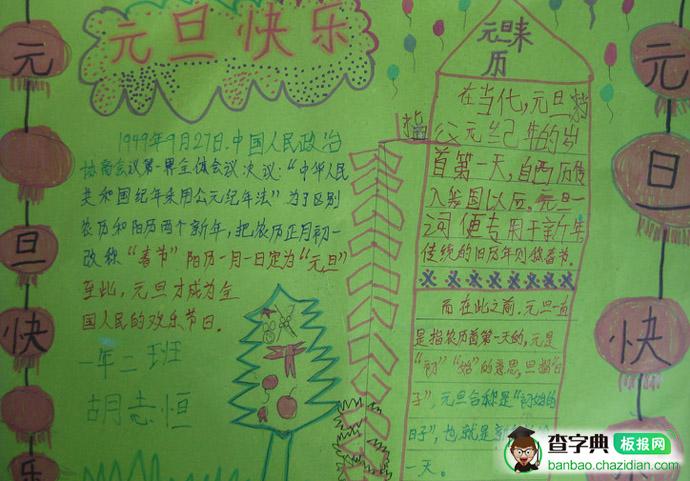 元旦快乐
元旦快乐
1949年9月27日.中国人民政治
协商会议第一界全体会议决议:“中华人民
共和国纪年采用公元纪年法”为了区别
农历和阳历两个新年,把农历正月初一
改称“春节”阳历一月一日定为“元旦”
至此,元旦才成为全
国人民的欢乐节日。
一年二班
胡志恒
元旦来
历
在当代,元旦指
公元纪年的岁
首第一天,自西历传
入我国以后.元旦一
词便专用于新年
传统的旧历年则称春节。
而在此之前,元旦一直
是指农历首第一天的,元是
“初”“始”的意思,旦指“日
子”,元旦合称是“初始的
日子”,也就是
一天。
元旦快
查字典 板报网
banbao.chazidian.com